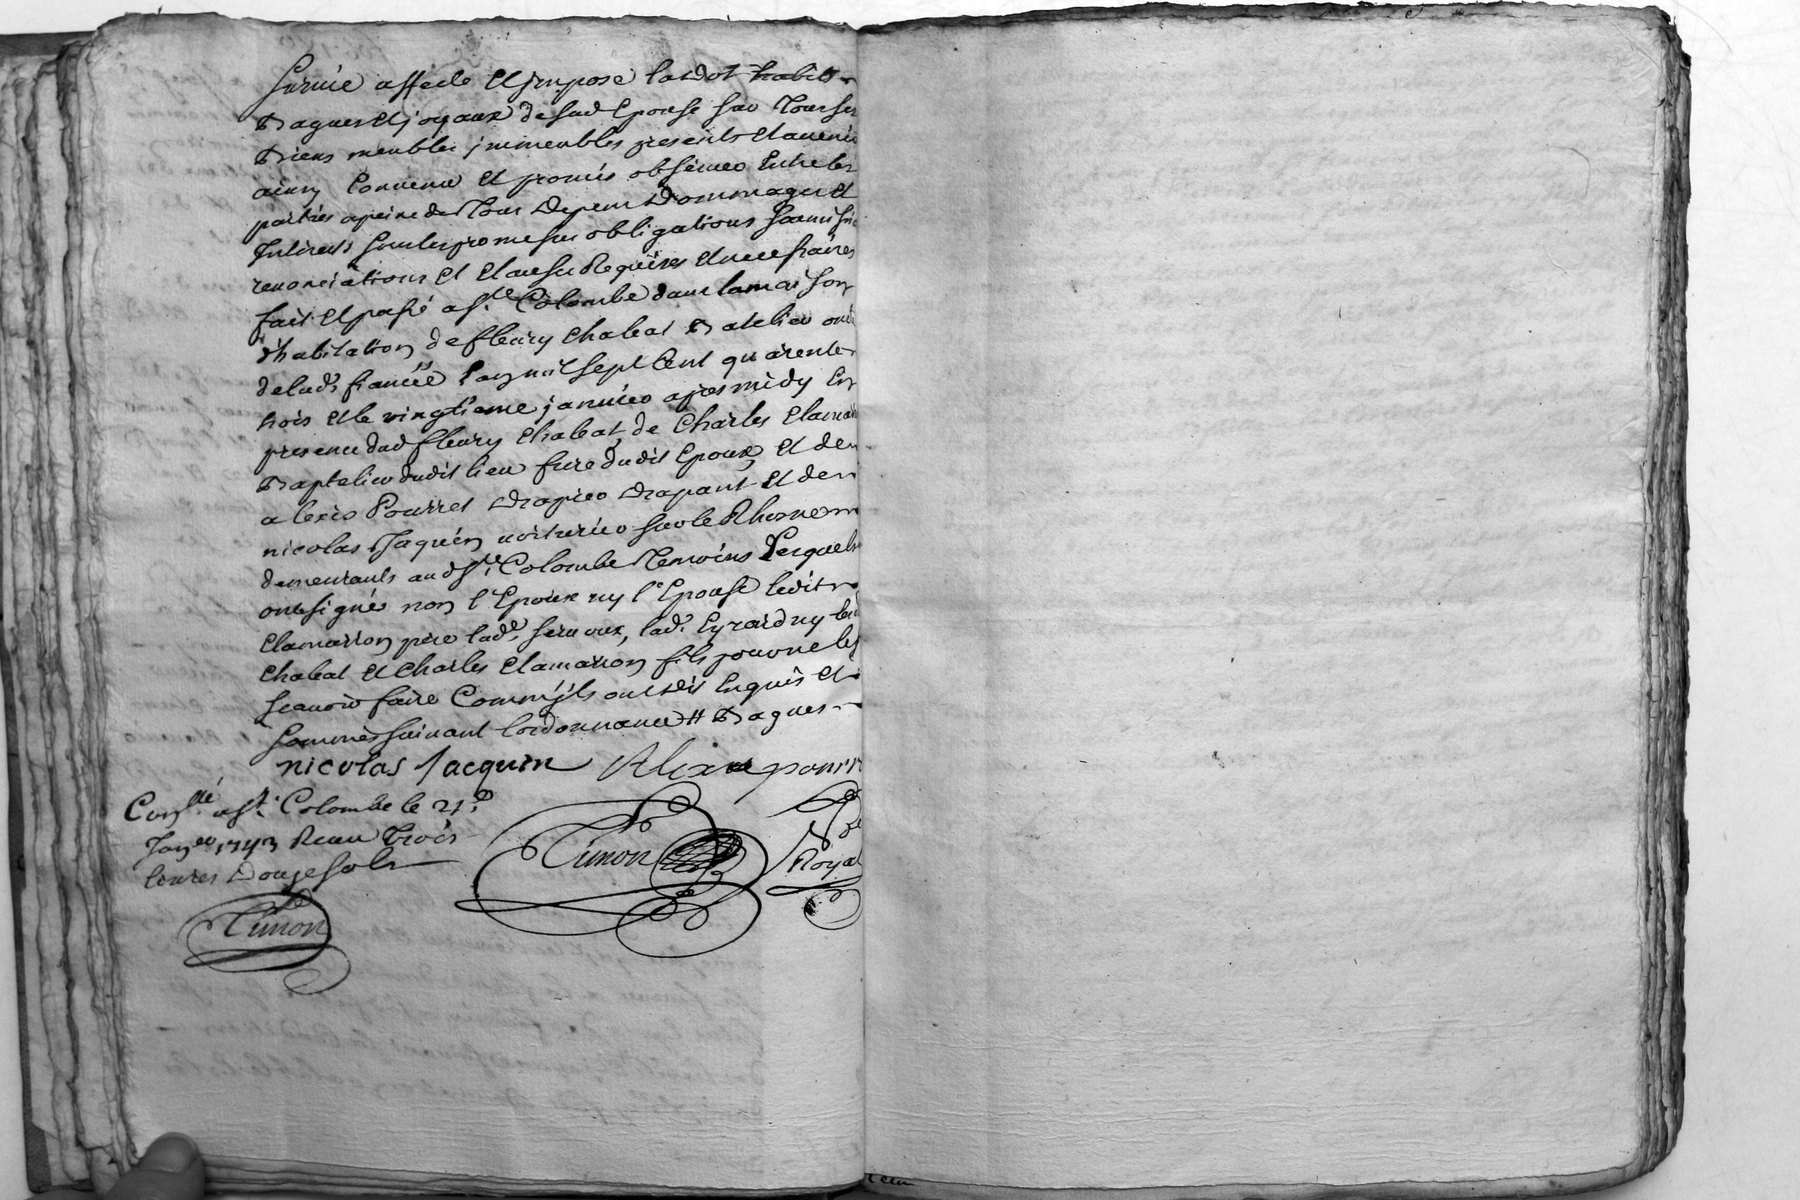 survie affecte et impose la dot habits
Bagues et joyaux de sad epouse sur tous ses
Biens meubles immeubles presents et avenir
ainsy convenu et promis observer entre les
parties apeine de tous depens dommages et
Interests sous les promesses obligations soumissi
renonciations et clauses Requises et necessaires
fait et passé a Ste Colombe dans la maison
d'habitation de fleury Chabat Batelier
de lade fiancée l'an mil sept cent quarente
trois et le vingtieme janvier apres midy En
presence dud fleury Chabat, de Charles clamar
Baptelier dudit lieu frere dudit Epoux, et de
alexis Pourret drapier drapant et de
nicolas Jaquein voiturier sur le Rhosne
demeurants aud Ste Colombe Temoins Lesquels
ont signés non l'Epoux ny l'Epouse ledit
Clamaron pere lade servoux, lade Eyraid ny led
Chabat et Charles Clamaron fils pour ne les
scavoir faire Comm'jls ont dit Enquis et
sommés suivant lordonnance # Bagues
nicolas Jacquin Alixe pourr
Conllé a Ste Colombe le 21e
Janer 1743 Receu trois
livres Douze sols
Timon
Royal
Timon